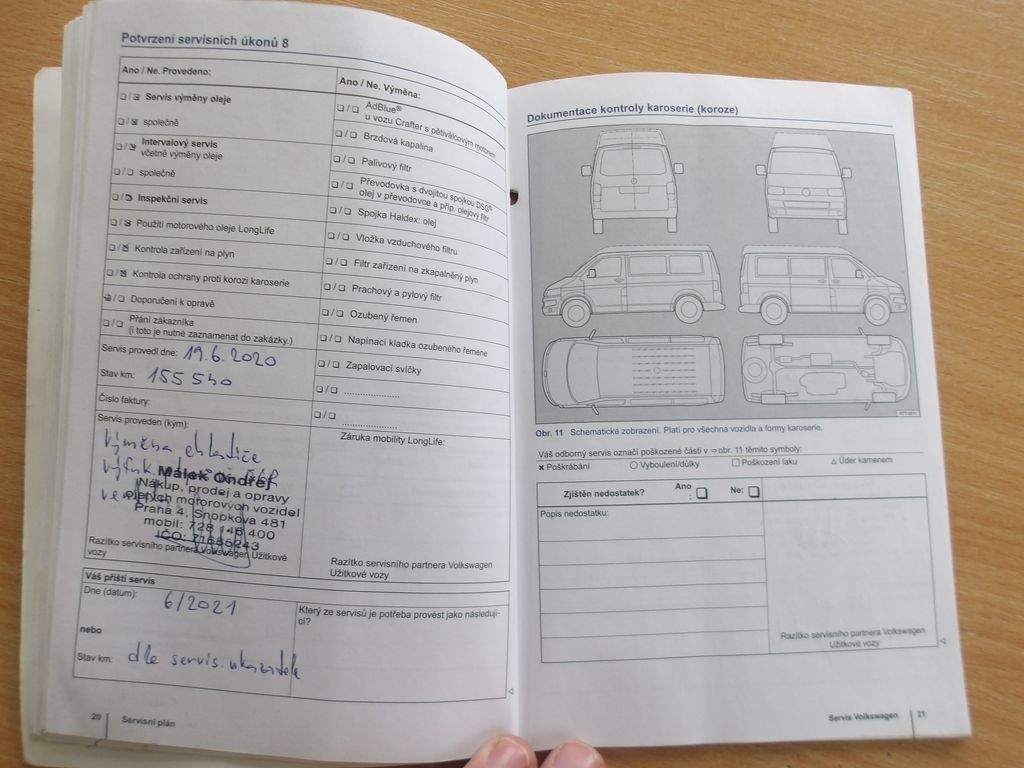 Potvrzení servisních úkonů 8
Ano / Ne. Provedeno:
Servis výměny oleje
společně
Intervalový servis
včetně výměny oleje
společně
Inspekční servis
Použití motorového oleje LongLife
Kontrola zařízení na plyn
Kontrola ochrany proti korozi karoserie
Doporučení k opravě
Přání zákazníka
(i toto je nutné zaznamenat do zakázky.)
Servis provedl dne: 19.6.2020
Stav km: 155 540
Číslo faktury:
Servis proveden (kým):
Výměna chladiče
výfuk. EGR
Málek Ondřej
Nákup, prodej a opravy
motorových vozidel
Praha 4, Šnopkova 481
mobil: 728 400
IČO:
Razítko servisního partnera Volkswagen Užitkové
vozy
Ano / Ne. Výměna:
AdBlue®
u vozu Crafter s pětiválcovým motorem
Brzdová kapalina
Palivový filtr
Převodovka s dvojitou spojkou DSG®
olej v převodovce a příp. olejový filtr
Spojka Haldex: olej
Vložka vzduchového filtru
Filtr zařízení na zkapalněný plyn
Prachový a pylový filtr
Ozubený řemen
Napínací kladka ozubeného řemene
Zapalovací svíčky
Záruka mobility LongLife:
Razítko servisního partnera Volkswagen
Užitkové vozy
Váš příští servis
Dne (datum): 6/2021
nebo
Stav km: dle servis. ukazatele
Který ze servisů je potřeba provést jako následují-
cí?
20 Servisní plán
Dokumentace kontroly karoserie (koroze)
Obr. 11 Schematické zobrazení. Platí pro všechna vozidla a formy karoserie.
Váš odborný servis označí poškozené části v ⇒ obr. 11 těmito symboly:
× Poškrábání ○ Vyboulení/důlky □ Poškození laku △ Úder kamenem
Zjištěn nedostatek? Ano : Ne:
Popis nedostatku:
Razítko servisního partnera Volkswagen
Užitkové vozy
Servis Volkswagen 21